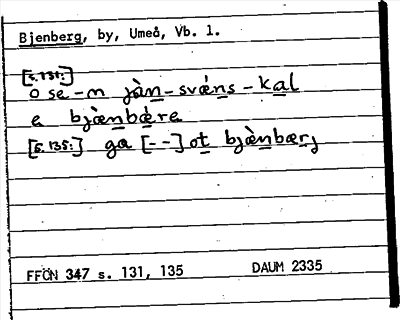 Bjenberg, by, Umeå, Vb. 1.
[s.131:]
o se-n jàn-svǽns-kal
e bjænbære
[s.135:] ga [--] ot bjænbærj
FFÖN 347 s. 131, 135 DAUM 2335